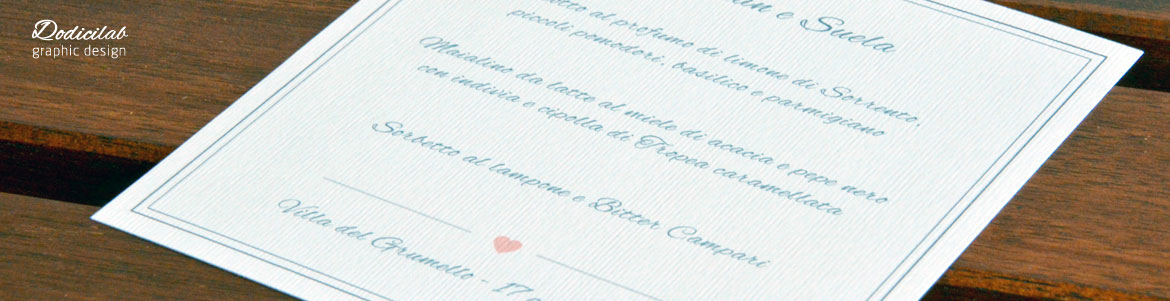 Dodicilab
graphic design
e Suela
al profumo di limone di Sorrento,
piccoli pomodori, basilico e parmigiano
Maialino da latte al miele di acacia e pepe nero
con indivia e cipolla di Tropea caramellata
Sorbetto al lampone e Bitter Campari
Villa del Grumello - 17